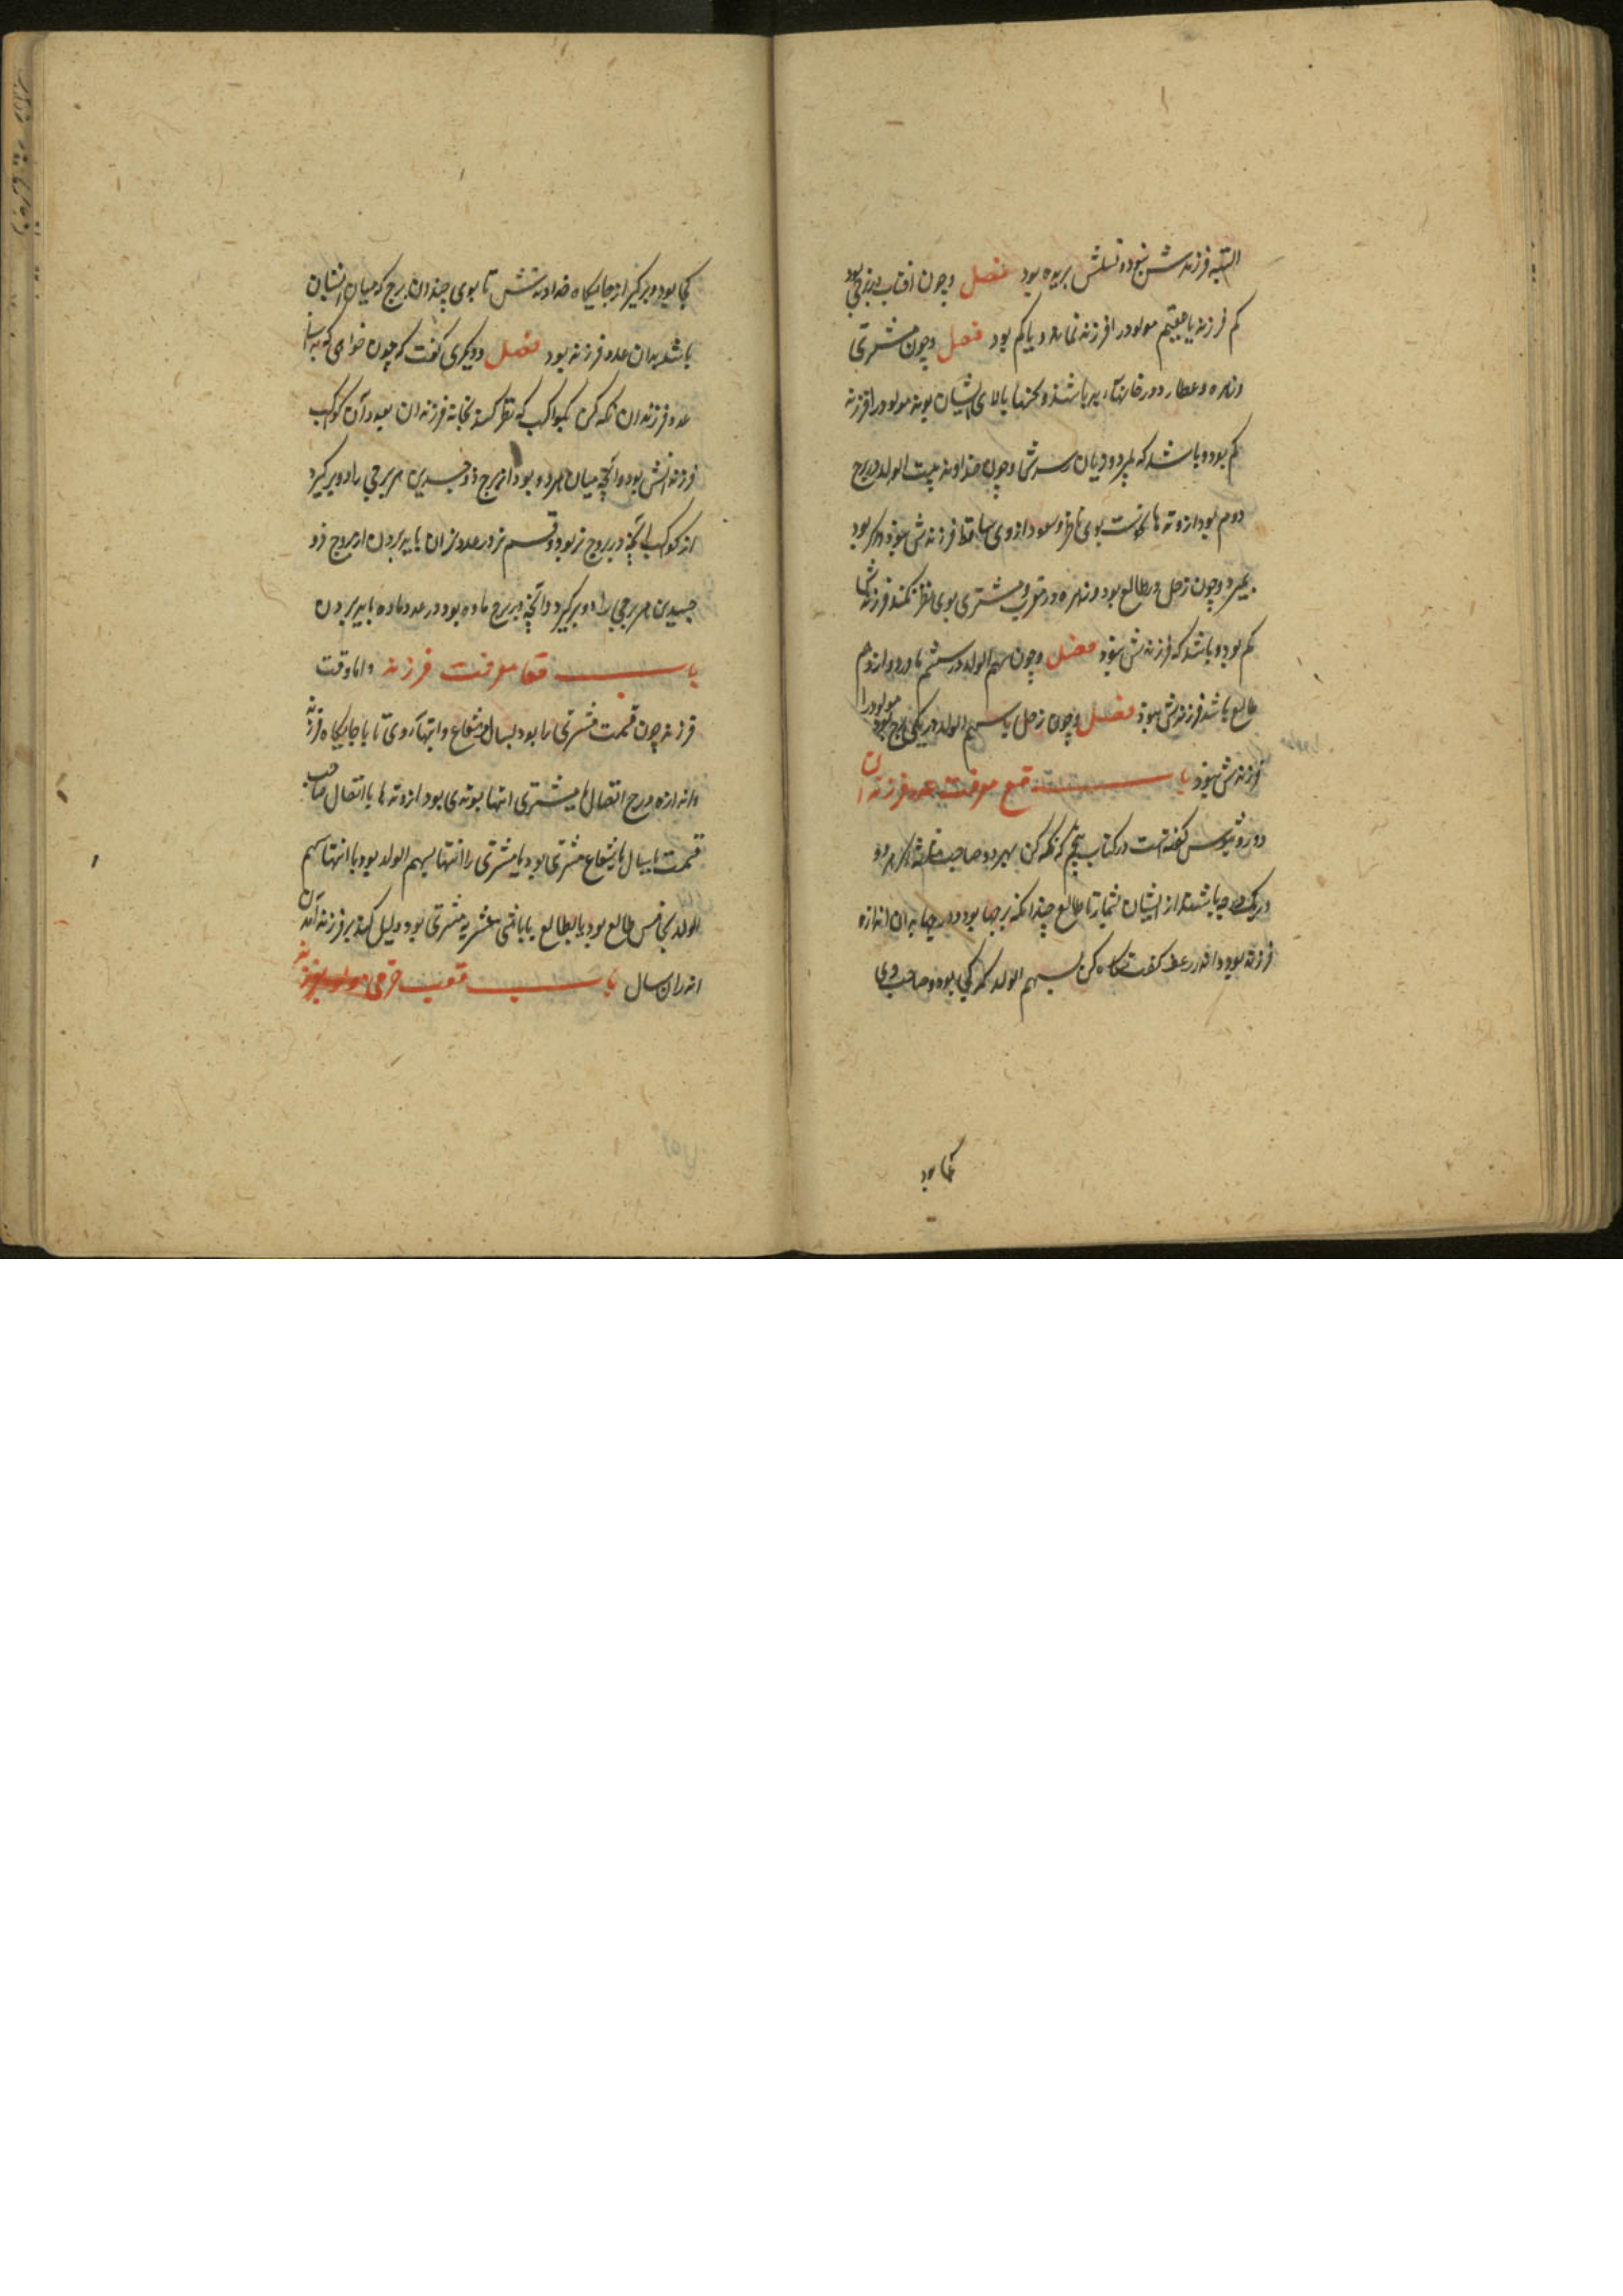 البته فرزندش نبود و نسلش بریده بود فصل و چون افتاب در برجی بود
کم فرزند یا عقیم مولود را فرزند نماند و یا کم بود فصل و چون مشتری
و زهره و عطارد در باشند و نحسها بالای ایشان بوند مولود را فرزند
کم بود و باشد که بمیرد و چون خداوند بیت الولد در برج
دوم بود از وتدها و نحست بوی ناظر و سعود از وی ساقط فرزندش نبود و اگر بود
بمیرد و چون زحل در طالع بود و زهره در غرب و مشتری بوی نظر نکند فرزندش
کم بود و باشد که فرزندش نبود فصل و چون سهم الولد در ششم یا در دوازدهم
طالع باشد فرزندش نبود فصل و چون زحل با سهم الولد در یکی برج بود مولود را
فرزندش نبود باب معرفت عدد فرزندان
دوروثیوس گفته است در کتاب پنجم که نگه کن بهر دو صاحب مثلثه اگر هر دو
در یک جا باشند از ایشان بشمار تا طالع چندانکه برجها بود و در جها بدان اندازه
فرزند بود و اندرزعر گفت نگاه کن بسهم الولد که کجا بود و صاحب وی
کجا بود
کجا بود و برگیر از جایگاه خداوندش تا بوی چندان برج که میان ایشان
باشد بدان عدد فرزند بود فصل و دیگری گفت که چون خواهی که بدانی
عدد فرزندان نگه کن بکواکب که نظر کند بخانه فرزندان بعدد آن کوکب
فرزندانش بود و آنچه میان هر دو بود از برج ذو جسدین هر برجی را دو برگیرد
از کوکب آنچه در بروج نر بود و قسم نر در عدد نران باید بردن از بروج ذو
جسدین هر برجی را دو برگیرد و آنچه در برج ماده بود در عدد ماده باید بردن
باب معرفت فرزند و اما وقت
فرزند چون قسمت مشتری را بود بسال شعاع و انتها آوی تا با جایگاه فرزند
و اندازه درج اتصال ها بمشتری انتها بوتدی بود از وتدها یا اتصال صاحب
قسمت با سال ها بشعاع مشتری بود یا مشتری را انتها بسهم الولد بود یا انتها سهم
الولد بخامس طالع بود یا بطالع یا باثنی عشریه مشتری بود دلیل کند بر فرزند آمدن
اندران سال باب